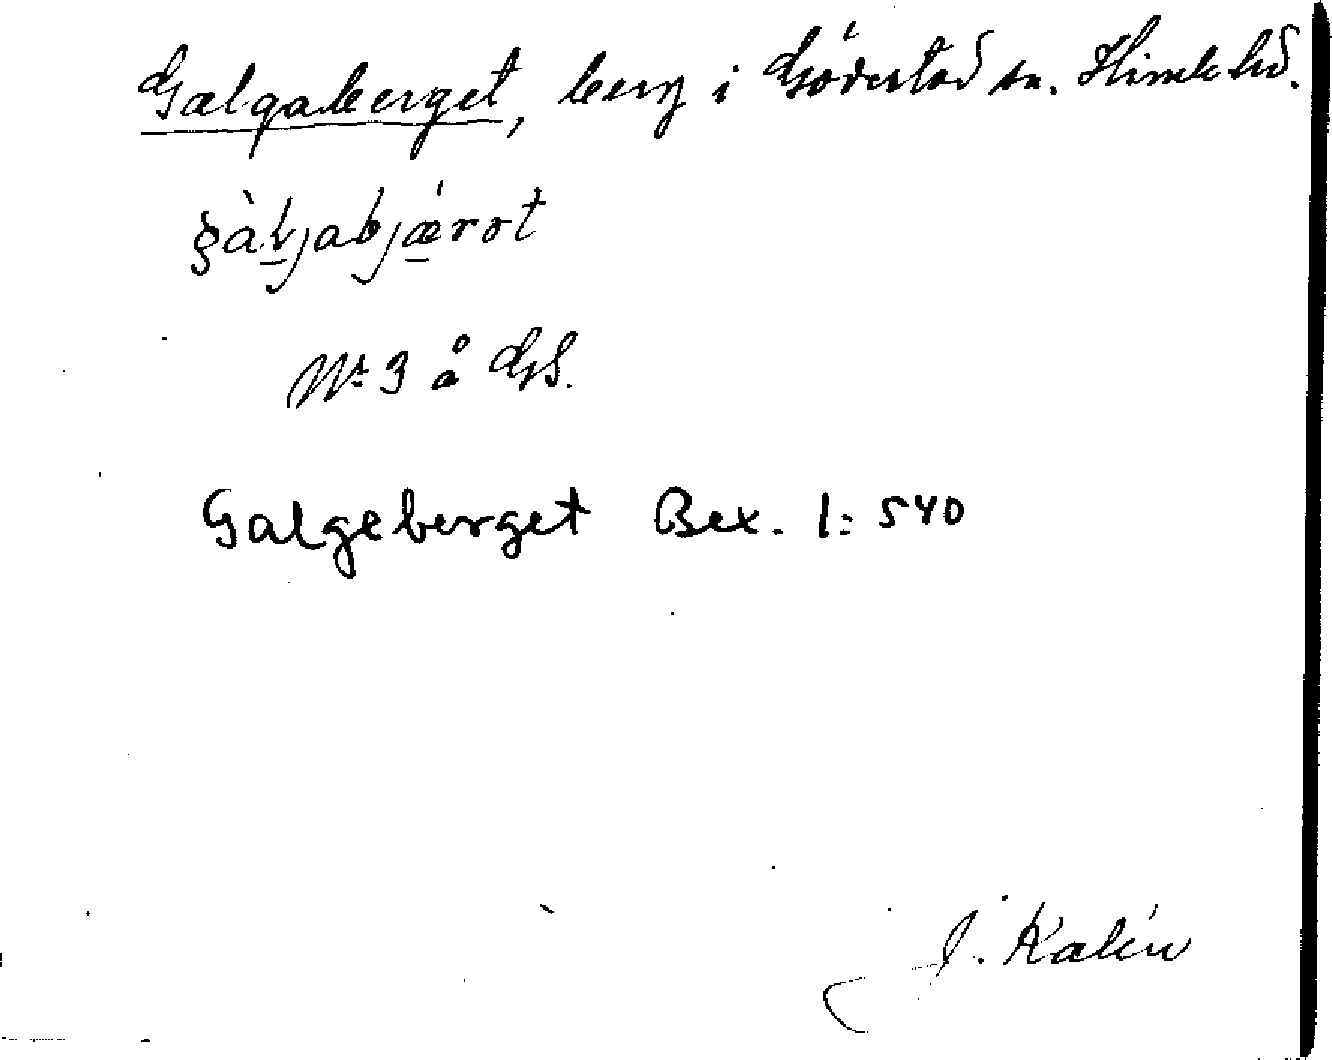 Galgaberget, berg i Gödestad sn. Himle hd.
gàljabjǽrət
Nr 3 å GS.
Galgeberget Bex. 1: 540
J. Kalén